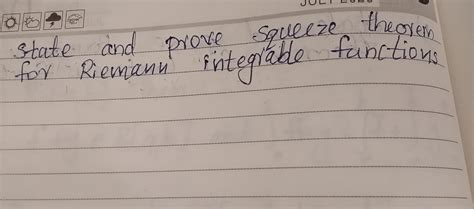 state and prove squeeze theorem
for Riemann integrable functions